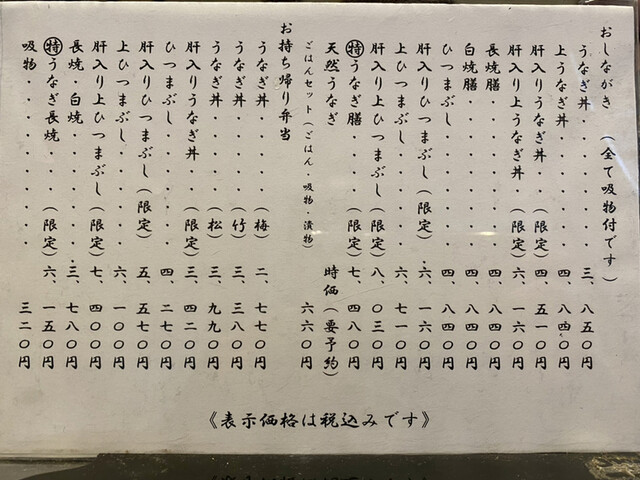 おしながき （全て吸物付です）
うなぎ丼・・・・・・・三、八五〇円
上うなぎ丼・・・・・・四、八四〇円
肝入りうなぎ丼・・（限定）四、五一〇円
肝入り上うなぎ丼・（限定）六、一六〇円
長焼膳・・・・・・・・四、八四〇円
白焼膳・・・・・・・・四、八四〇円
ひつまぶし・・・・・・四、八四〇円
肝入りひつまぶし・（限定）・六、一六〇円
上ひつまぶし・・・・・六、七一〇円
肝入り上ひつまぶし（限定）八、〇三〇円
㊕うなぎ膳・・・・（限定）七、四八〇円
天然うなぎ 時価（要予約）
ごはんセット（ごはん・吸物・漬物） 六六〇円
お持ち帰り弁当
うなぎ丼・・・・・（梅）二、七七〇円
うなぎ丼・・・・・（竹）三、三八〇円
うなぎ丼・・・・・（松）三、九九〇円
肝入りうなぎ丼・・（限定）三、四二〇円
ひつまぶし・・・・・・四、二七〇円
肝入りひつまぶし（限定）五、五七〇円
上ひつまぶし・・・・・六、一〇〇円
肝入り上ひつまぶし（限定）七、四〇〇円
長焼・白焼・・・・・・三、七八〇円
㊕うなぎ長焼・・・（限定）六、一五〇円
吸物・・・・・・・・・三二〇円
《表示価格は税込みです》